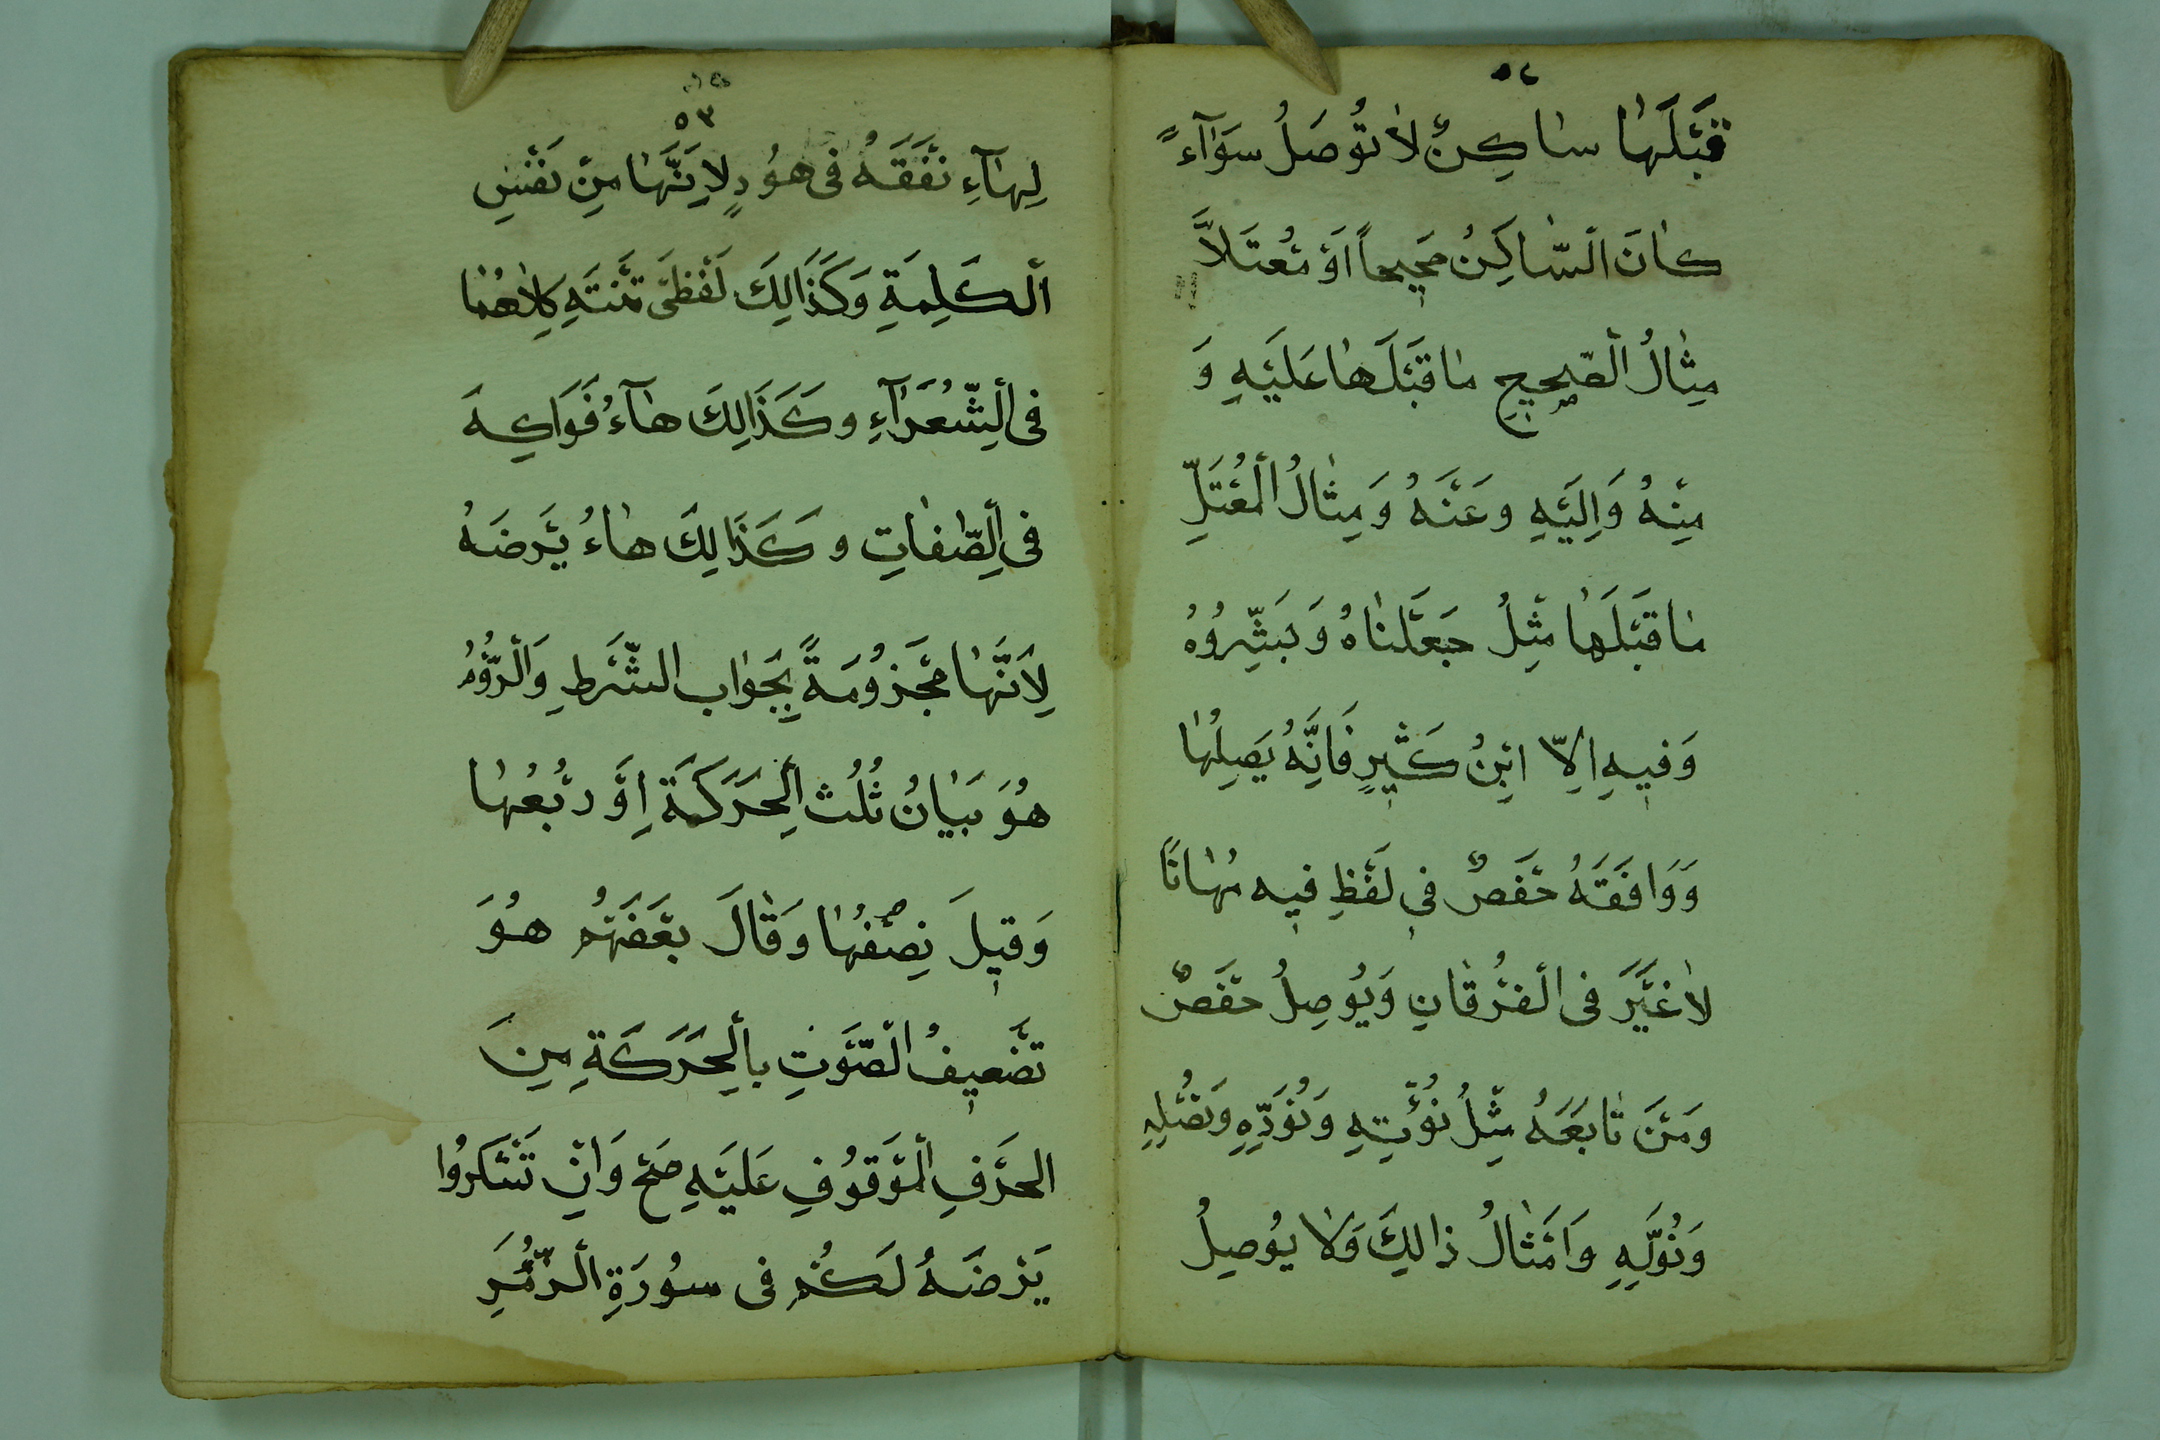 ٥٢
قَبْلَهَا سَاكِنٌ لَا تُوصَلُ سَوَآءً
كَانَ السَّاكِنُ صَحِيحاً اَوْ مُعْتَلاًّ
مِثَالُ الصَّحِيحِ مَا قَبْلَهَا عَلَيْهِ وَ
مِنْهُ وَاِلَيْهِ وَعَنْهُ وَمِثَالُ الْمُعْتَلِّ
مَا قَبْلَهَا مِثْلُ جَعَلْنَاهُ وَبَشِّرُوهُ
وَفِيهِ اِلَّا ابْنُ كَثِيرٍ فَاِنَّهُ يَصِلُهَا
وَوَافَقَهُ حَفْصٌ فِي لَفْظِ فِيهِ مُهَانًا
لَا غَيْرَ فِى الْفُرْقَانِ وَيُوصِلُ حَفْصٌ
وَمَنْ تَابَعَهُ مِثْلُ نُؤْتِهِ وَنُؤَدِّهِ وَنُصْلِهِ
وَنُوَلِّهِ وَاَمْثَالُ ذَالِكَ وَلَا يُوصِلُ
٥٣
لِهَآءِ نَفْقَهُ فِى هُودٍ لِاَنَّهَا مِنْ نَفْسِ
اَلْكَلِمَةِ وَكَذَالِكَ لَفْظَىْ تَنْتَهِ كِلَاهُمَا
فِى الشُّعَرَآءِ وَكَذَالِكَ هَآءُ فَوَاكِهَ
فِى الصَّفَاتِ وَكَذَالِكَ هَاءُ يَرْضَهُ
لِاَنَّهَا مَجْزُومَةً بِجَوَاب الشَّرْطِ وَالرَّوْمُ
هُوَ بَيَانُ ثُلُث الْحَرَكَةِ اَوْ رُبْعُهَا
وَقِيلَ نِصْفُهَا وَقَالَ بَعْضَهُمْ هُوَ
تَضْعِيفُ الصَّوْتِ بِالْحَرَكَةِ مِنَ
الْحَرْفِ الْمَوْقُوفِ عَلَيْهِ صَحْ وَاِنْ تَشْكُرُوا
يَرْضَهُ لَكُمْ فِى سُورَةِ الزُّمَرِ